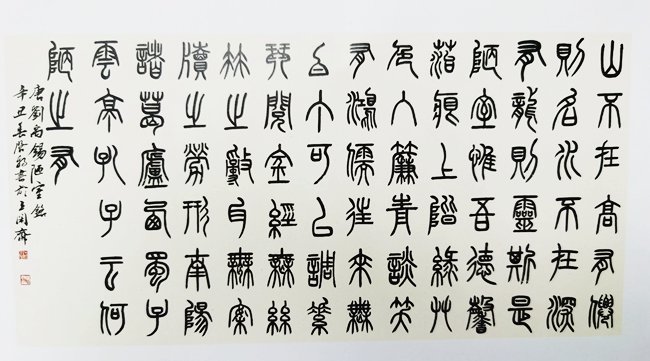 山不在高有僊
則名水不在深
有龍則靈斯是
陋室惟吾德馨
菭痕上階綠艸
色入簾青談笑
有鴻儒往來無
白丁可以調素
琴閱金經無絲
竹之亂耳無案
牘之勞形南陽
諸葛廬西蜀子
雲亭孔子云何
陋之有
唐劉禹錫陋室銘
辛丑春書於齋